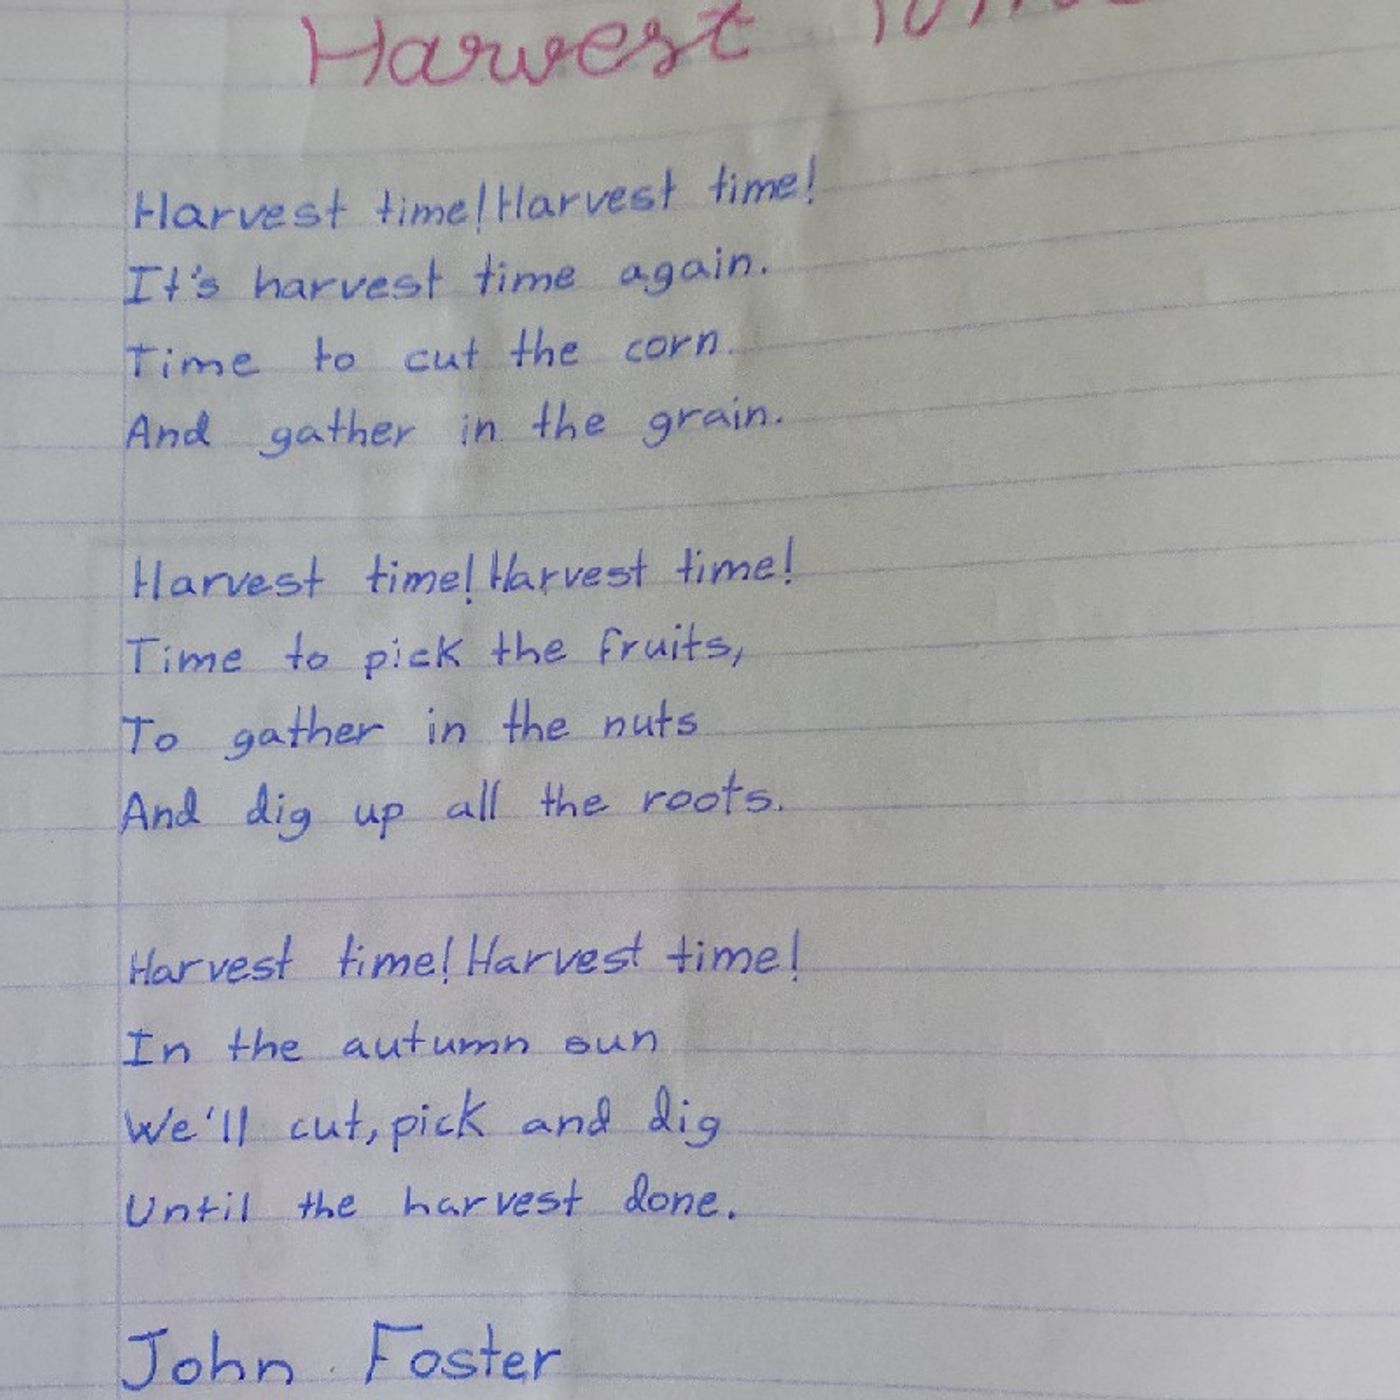 Harvest
Harvest time! Harvest time!
It's harvest time again.
Time to cut the corn
And gather in the grain.
Harvest time! Harvest time!
Time to pick the fruits,
To gather in the nuts
And dig up all the roots.
Harvest time! Harvest time!
In the autumn sun
We'll cut, pick and dig
Until the harvest done.
John Foster